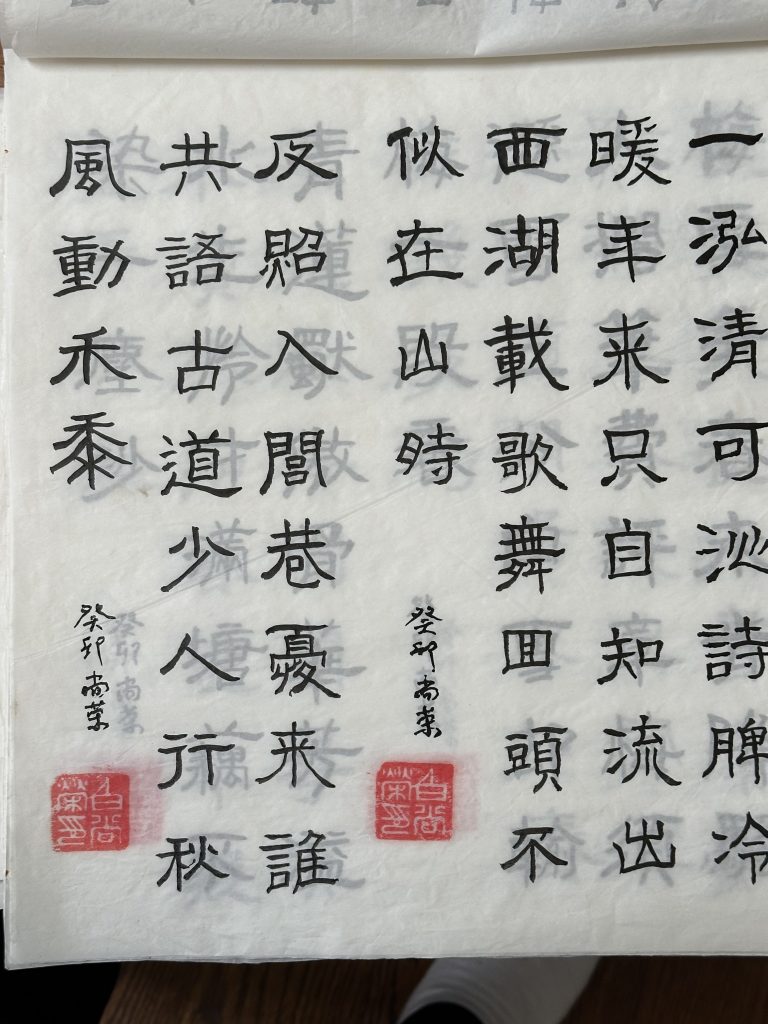 一泓清可沁詩脾冷
暖年来只自知流出
西湖載歌舞回頭不
似在山時
癸卯尚荣
白尚榮印
反照入閭巷憂来誰
共語古道少人行秋
風動禾黍
癸卯尚荣
白尚榮印